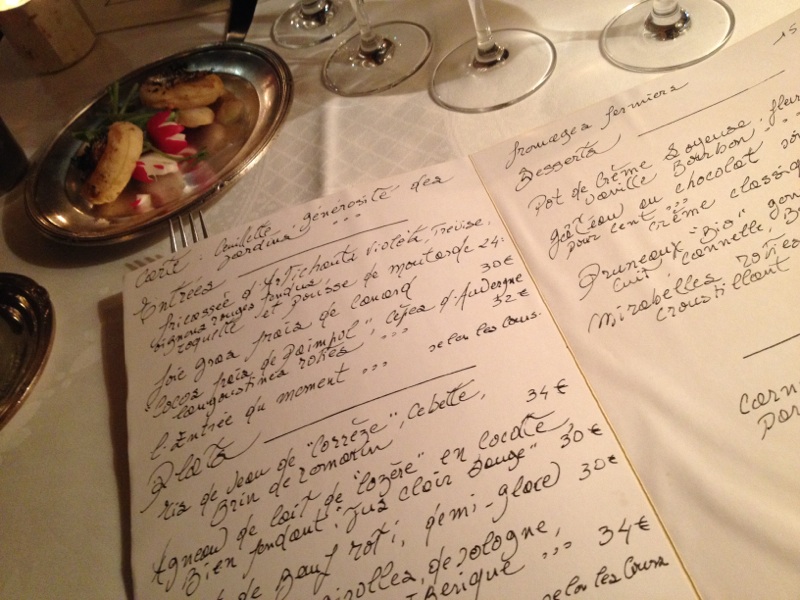 carte : Cueillette, générosité des
jardins ...
Entrées
fricassée d'Artichauts violets, Trévise,
oignons rouges fondus
roquette et pousse de moutarde 24.
foie gras frais de canard 30€
"Cocos frais de Paimpol", cèpes d'Auvergne
langoustines roties ... 32€
l'Entrée du moment ... selon les cours.
Plats
ris de veau de "Corrèze", Cebette,
Brin de romarin 34€
Agneau de lait de "Lozère" en cocotte,
Bien fondant. Jus clair Sauge" 30€
de Bœuf roti, demi-glace 30€
girolles, de Sologne,
Iberique ... 34€
selon les cours
15
fromages fermiers
Desserts
Pot de Crème Soyeuse, fleur
vanille Bourbon ...
gâteau au chocolat
pour cent ... crème classiq
Pruneaux "Bio"
cuit, Cannelle,
Mirabelles roties
croustillant